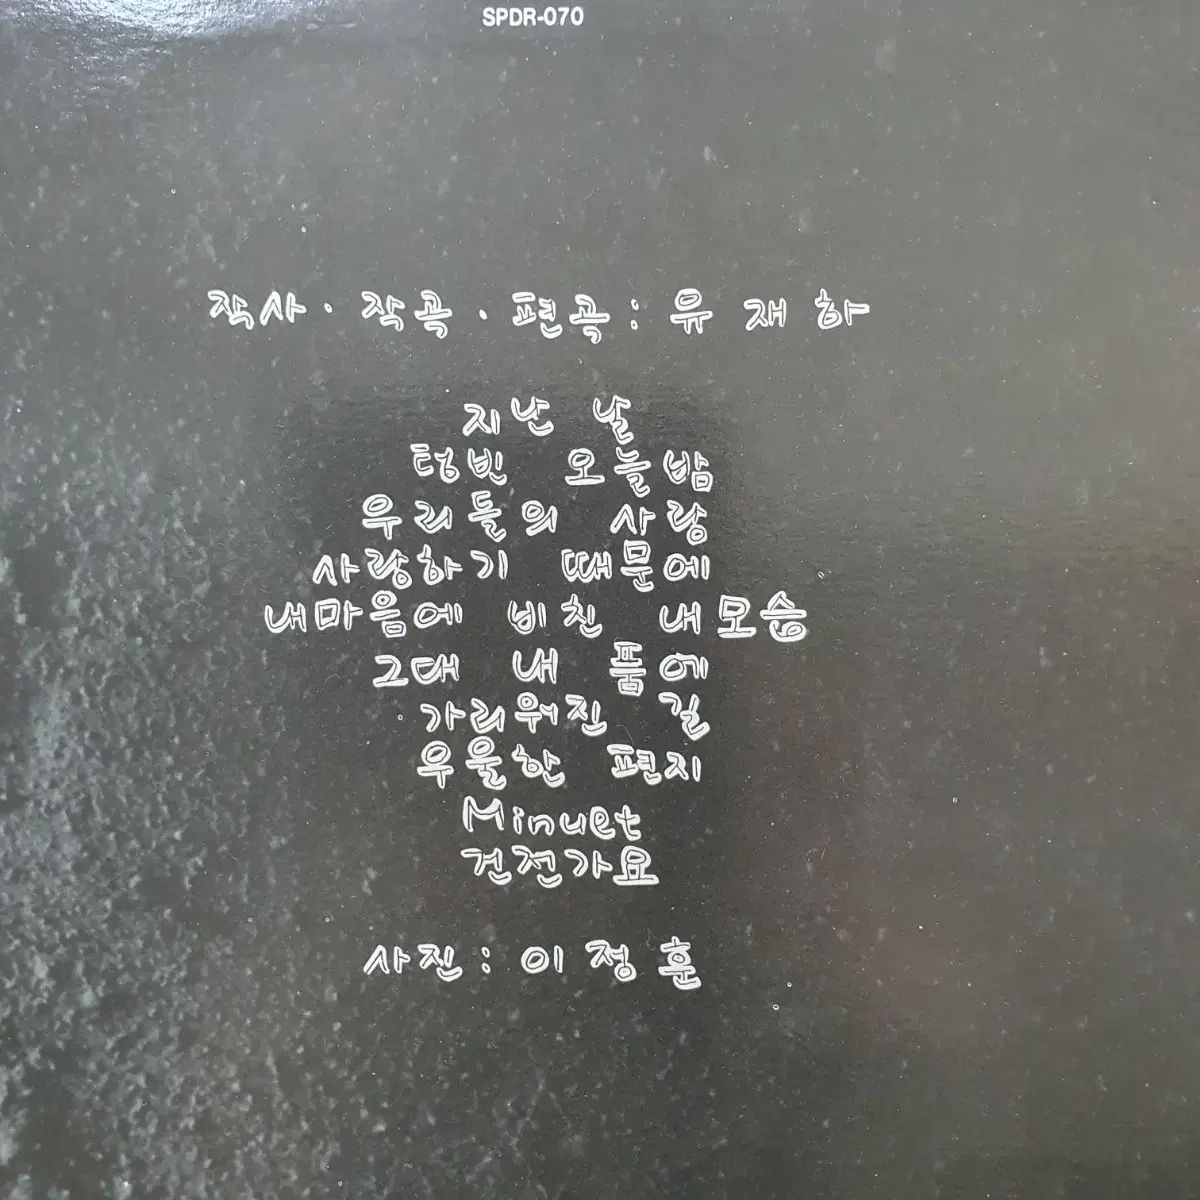 SPDR-070
작사·작곡·편곡:유 재 하
지난 날
텅빈 오늘밤
우리들의 사랑
사랑하기 때문에
내마음에 비친 내모습
그대 내 품에
가리워진 길
우울한 편지
Minuet
건전가요
사진: 이 정 훈